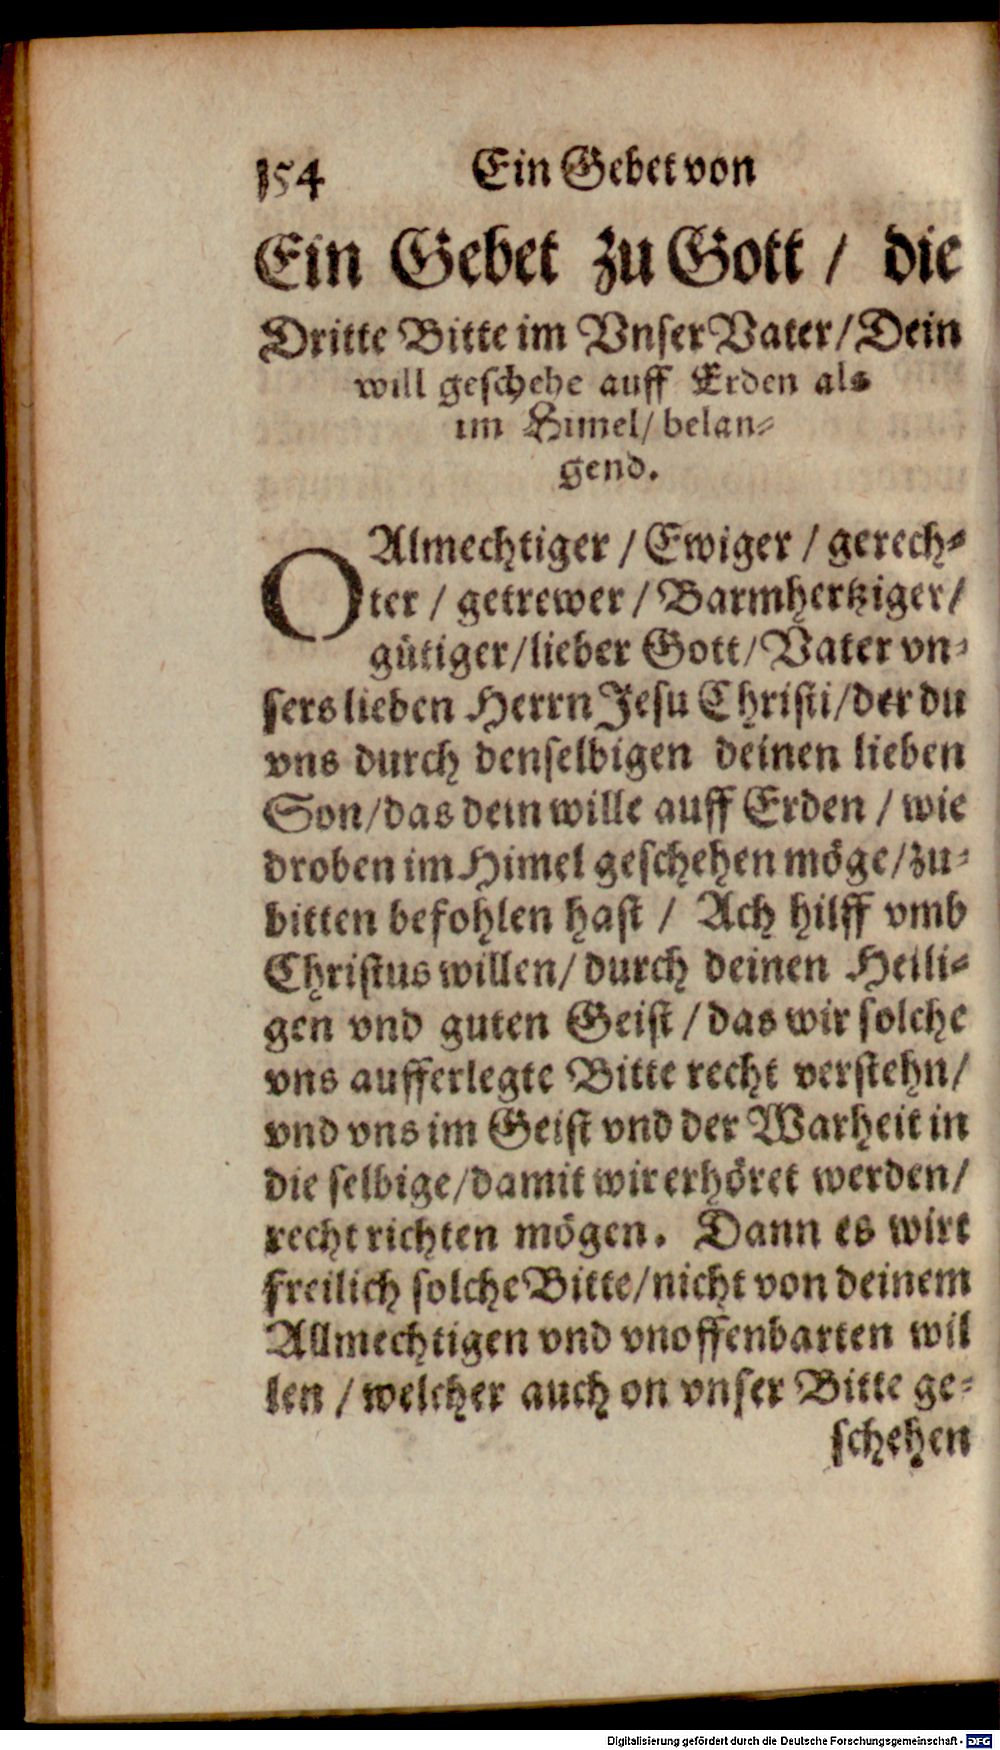 154 Ein Gebet von
Ein Gebet zu Gott / die
Dritte Bitte im Vnser Vater / Dein
will geschehe auff Erden als
im Himel / belan-
gend.
O Almechtiger / Ewiger / gerech-
ter / getrewer / Barmhertziger /
gütiger / lieber Gott / Vater vn-
sers lieben Herrn Jesu Christi / der du
vns durch denselbigen deinen lieben
Son / das dein wille auff Erden / wie
droben im Himel geschehen möge / zu-
bitten befohlen hast / Ach hilff vmb
Christus willen / durch deinen Heili-
gen vnd guten Geist / das wir solche
vns aufferlegte Bitte recht verstehn /
vnd vns im Geist vnd der Warheit in
die selbige / damit wir erhöret werden /
recht richten mögen. Dann es wirt
freilich solche Bitte / nicht von deinem
Allmechtigen vnd vnoffenbarten wil
len / welcher auch on vnser Bitte ge-
schehen
Digitalisierung gefördert durch die Deutsche Forschungsgemeinschaft - DFG